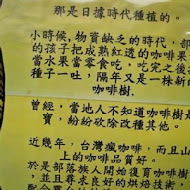 那是日據時代種植的。
小時候,物資缺乏的時代,部
的孩子把成熟紅透的咖啡果
當水果當零食,吃完之後
種子一吐,隔年又是一株新的
咖啡樹.
曾經,當地人不知道咖啡樹是
寶,紛紛砍除改種其他.
近幾年,台灣瘋咖啡,而且山
上的咖啡品質好.
於是部落族人開始復育咖啡
並且尋求良好的烘焙技術